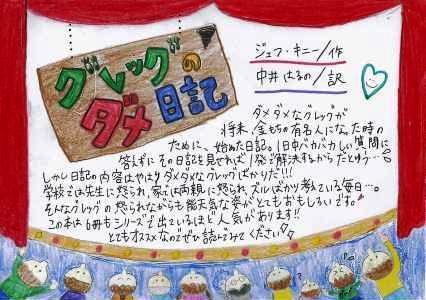 グレッグの
ダメ日記
ジェフ・キニー/作
中井はるの/訳
ダメダメなグレッグが
将来、金もちの有名人になった時の
ために、始めた日記。1日中バカバカしい質問に
答えずにその日記を見せれば1発で解決するからだとゆう…。
しかし日記の内容はやはりダメダメなグレッグばかりだ!!!
学校では先生に怒られ、家では両親に怒られ、ズルばかり考えている毎日…。
そんなグレッグの怒られながらも能天気な姿がとてもおもしろいです。
この本は6冊もシリーズで出ているほど人気があります!!
とてもオススメなのでぜひ読んでみてください